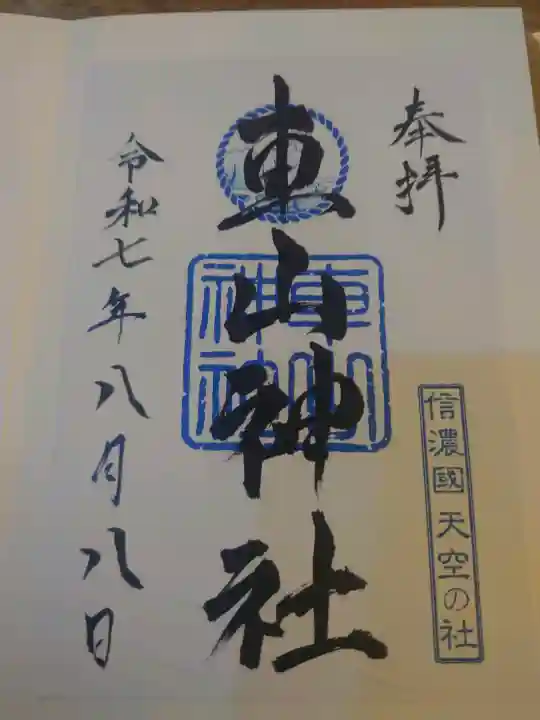 奉拝
信濃國 天空の社
東山神社
東山神社
令和七年八月八日